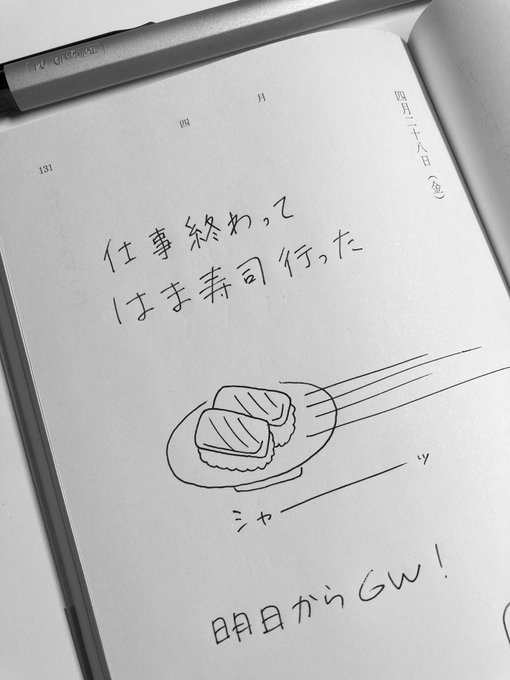 四月
四月二十八日(金)
131
仕事終わって
はま寿司行った
シャーッ
明日からGW!